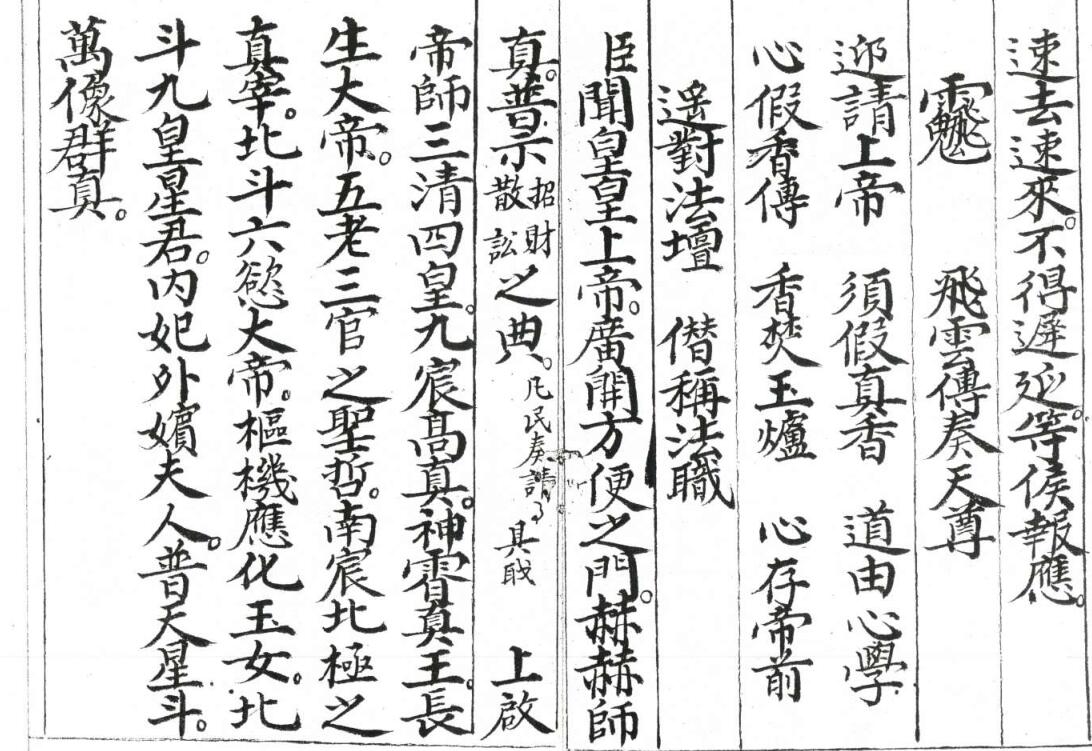 速去速來。不得遲延。等候報應。
飛雲傳奏天尊
迎請上帝 須假真香 道由心學
心假香傳 香焚玉爐 心存帝前
遥對法壇 僭稱法職
臣聞皇皇上帝。廣開方便之門。赫赫師
真。普示招財散訟之典。凡民奏請 具戝 上啟
帝師三清四皇。九宸高真。神霄真王。長
生大帝。五老三官之聖哲。南宸北極之
真宰。北斗六慾大帝。樞機應化玉女。北
斗九皇星君。内妃外嬪夫人。普天星斗。
萬像群真。